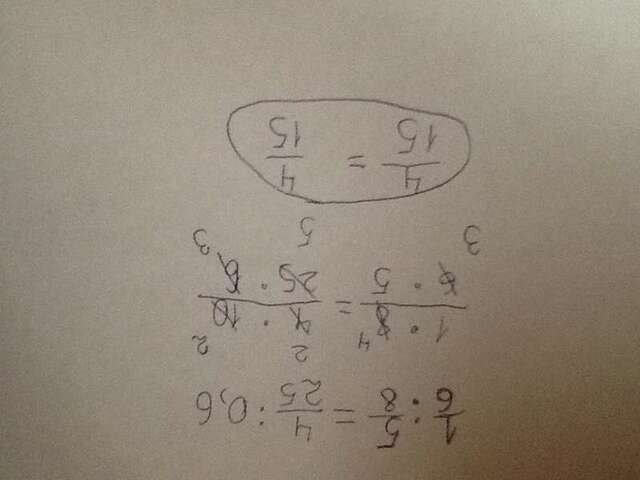 1/6 : 5/8 = 4/25 : 0,6
1 · 8 4 / 6 · 5 3 = 2 4 · 10 2 / 25 · 6 5 3
4/15 = 4/15